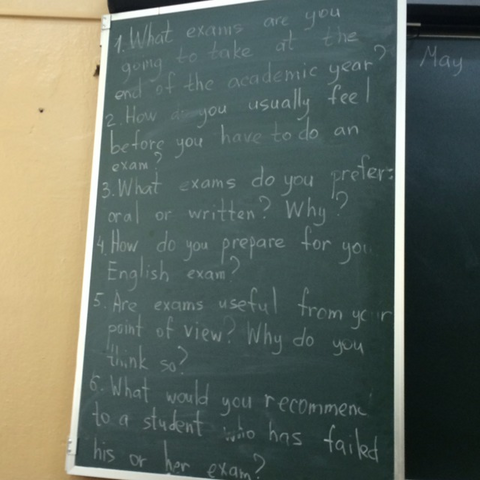 1. What exams are you
going to take at the
end of the academic year?
2. How do you usually feel
before you have to do an
exam?
3. What exams do you prefer:
oral or written? Why?
4. How do you prepare for your
English exam?
5. Are exams useful from your
point of view? Why do you
think so?
6. What would you recommend
to a student who has failed
his or her exam?
May